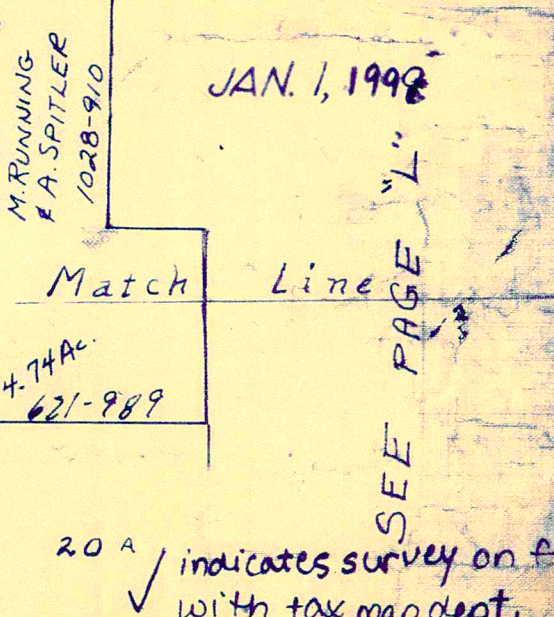 M. RUNNING
& A. SPITLER
1028-910
JAN. 1, 1998
SEE PAGE "L"
Match Line
4.74 Ac.
621-989
20 A
✓ indicates survey on
with tax map dept.